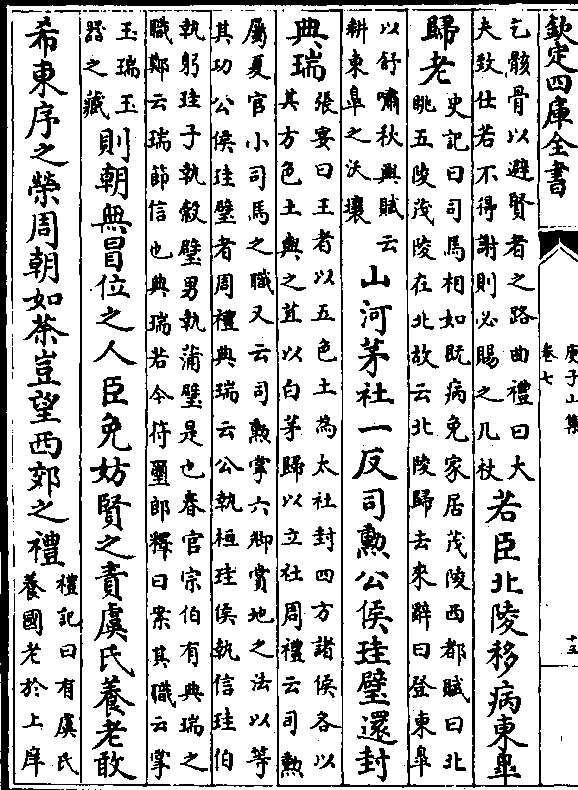 欽定四庫全書
庾子山集
卷七
十五
乞骸骨以避賢者之路曲禮曰大
夫致仕若不得謝則必賜之几杖
若臣北陵移病東皐
歸老
史記曰司馬相如既病免家居茂陵西都賦曰北
眺五陵茂陵在北故云北陵歸去來辭曰登東皐
以舒嘯秋興賦云
耕東皐之沃壤
山河茅社一反司勲公侯珪璧還封
典瑞
張宴曰王者以五色土為太社封四方諸侯各以
其方色土與之苴以白茅歸以立社周禮云司勲
屬夏官小司馬之職又云司勲掌六鄉賞地之法以等
其功公侯珪璧者周禮典瑞云公執桓珪侯執信珪伯
執躬珪子執穀璧男執蒲璧是也春官宗伯有典瑞之
職鄭云瑞節信也典瑞若今符璽郎釋曰案其職云掌
玉瑞玉
器之藏
則朝無冒位之人臣免妨賢之責虞氏養老敢
希東序之榮周朝如荼豈望西郊之禮
禮記曰有虞氏
養國老於上庠